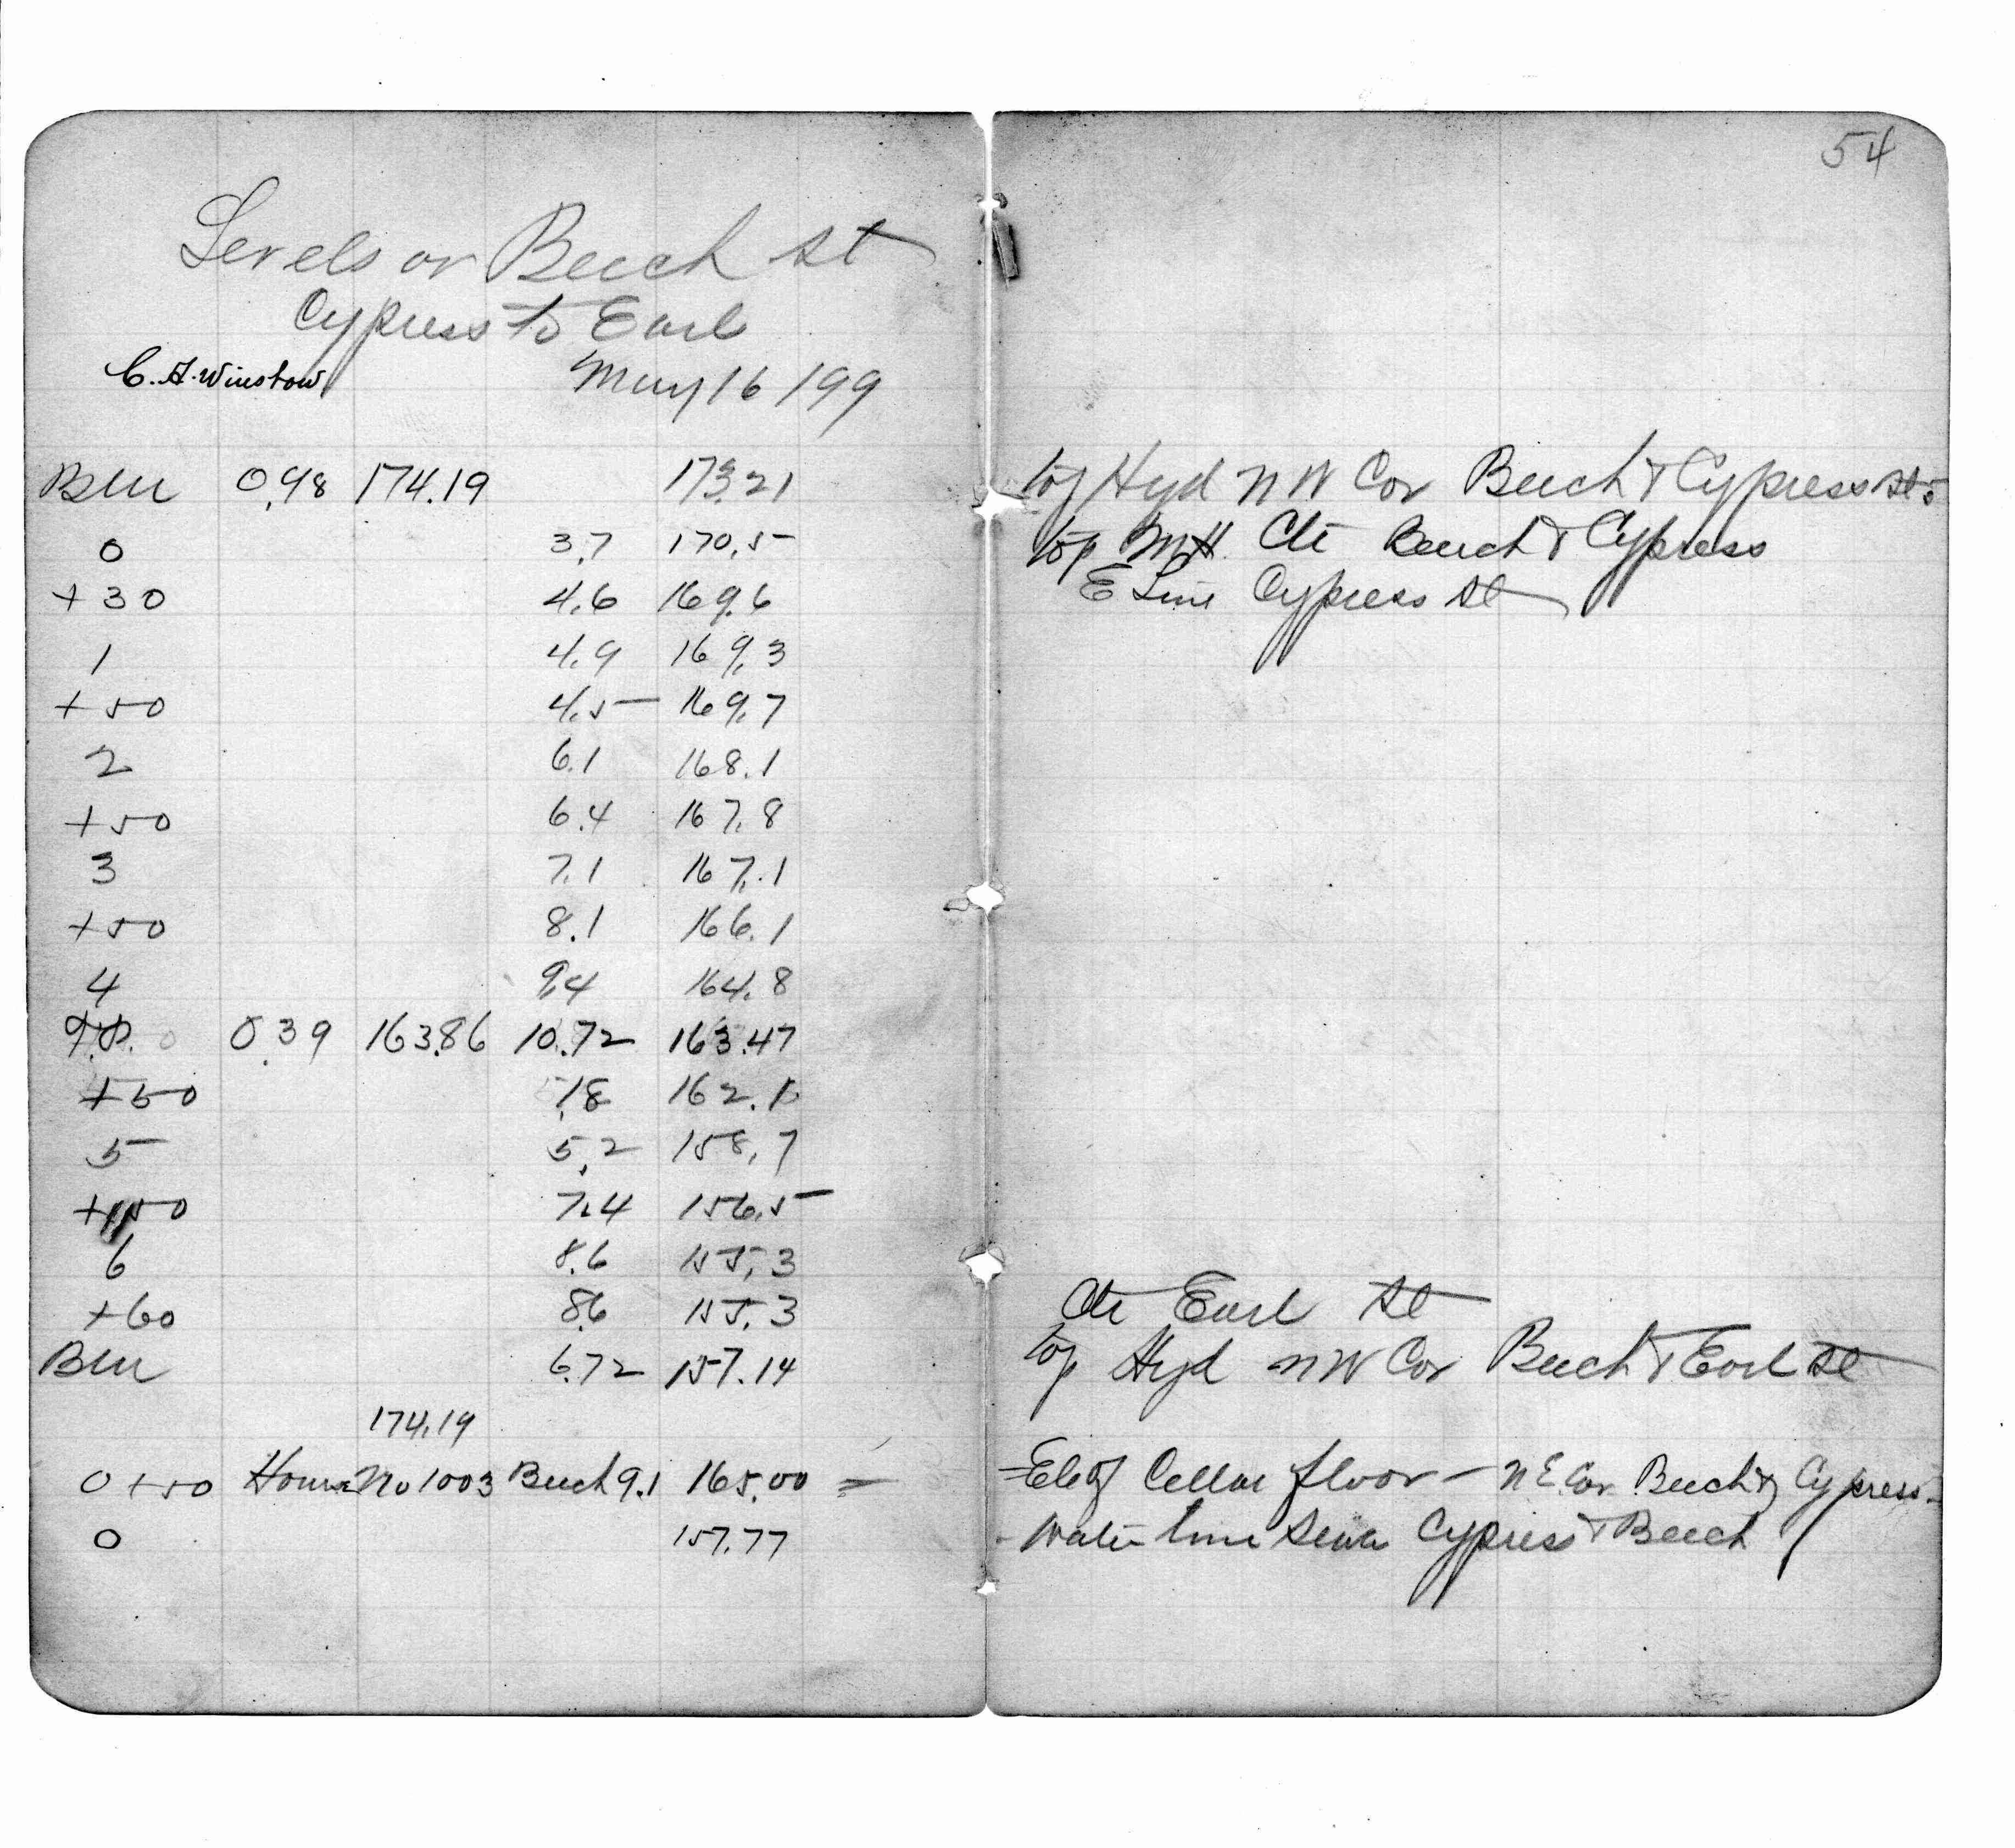 54
Levels on Beech St
Cypress to Earl
C. A. Winslow May 16 / 99
BM 0.98 174.19 173.21 top Hyd NW Cor Beech & Cypress Sts
0 3.7 170.5 top MH. Ctr Beech & Cypress
+30 4.6 169.6 E Line Cypress St
1 4.9 169.3
+50 4.5 169.7
2 6.1 168.1
+50 6.4 167.8
3 7.1 167.1
+50 8.1 166.1
4 9.4 164.8
T.P. 0.39 163.86 10.72 163.47
+50 1.8 162.1
5 5.2 158.7
+50 7.4 156.5
6 8.6 155.3
+60 8.6 155.3 Ctr Earl St
BM 6.72 157.14 top Hyd NW Cor Beech & Earl St
174.19
0+50 House No 1003 Beech 9.1 165.00 = = El of Cellar floor - NE Cor Beech & Cypress -
0 157.77 - Water line Sewer Cypress & Beech